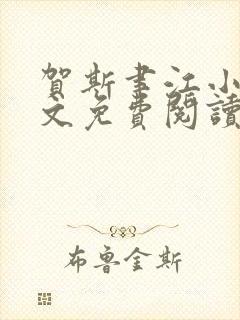 賀斯書江小
文免費閱讀
布魯金斯